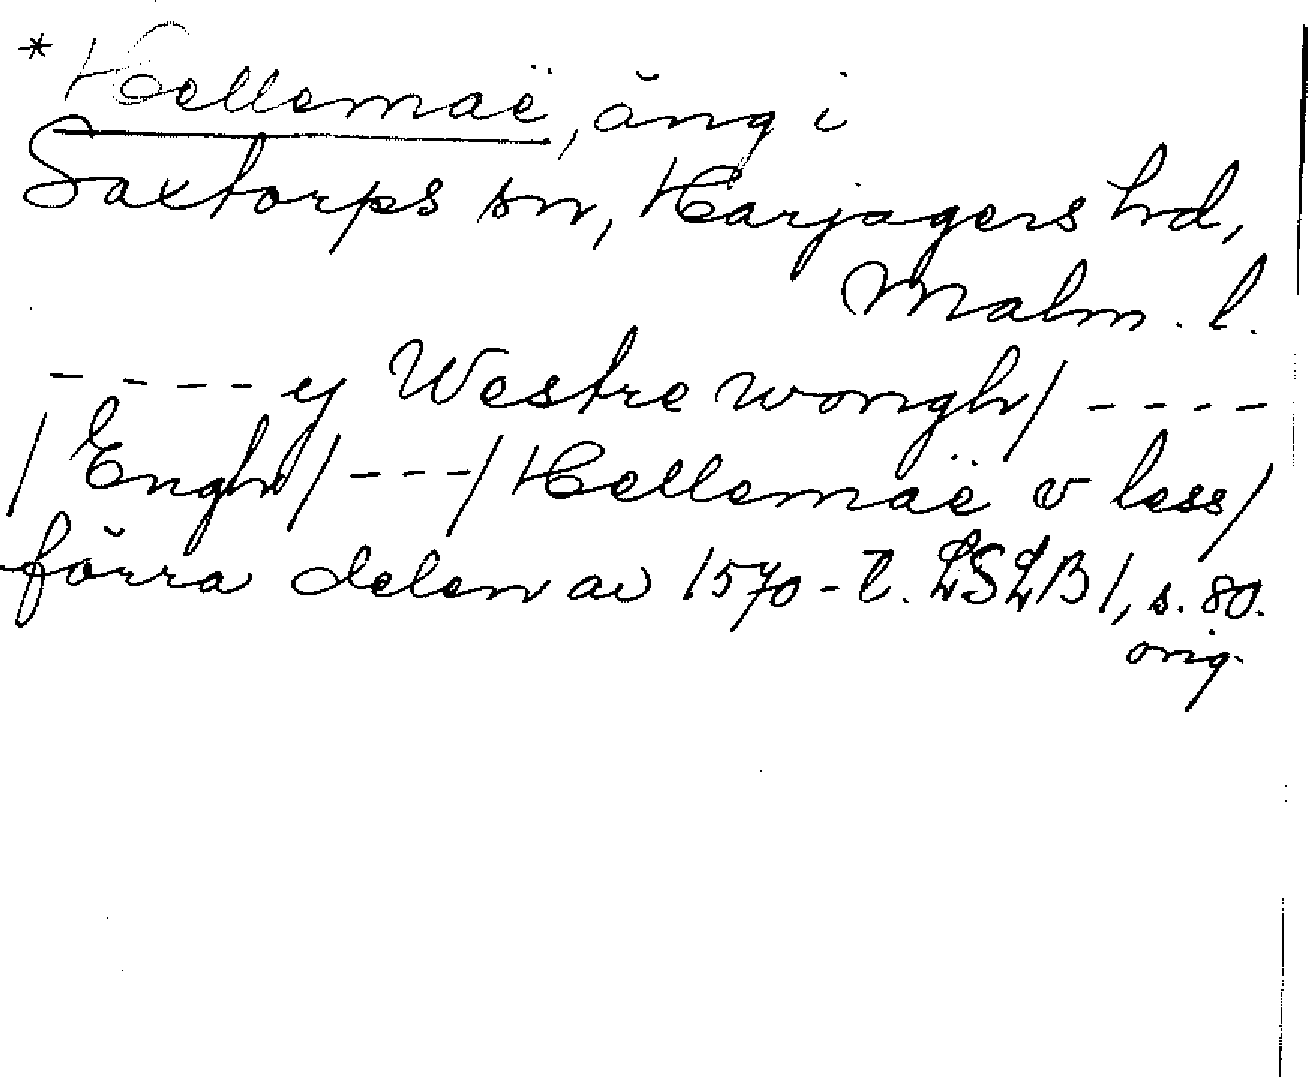 * Hellemaë, äng i
Saxtorps sn, Harjagers hd,
Malm. l.
---- ij Westre wongh/ ----
/Engh/ ---/ Hellemaë v less/
förra delen av 1570-t. LSLB 1, s. 80.
orig.